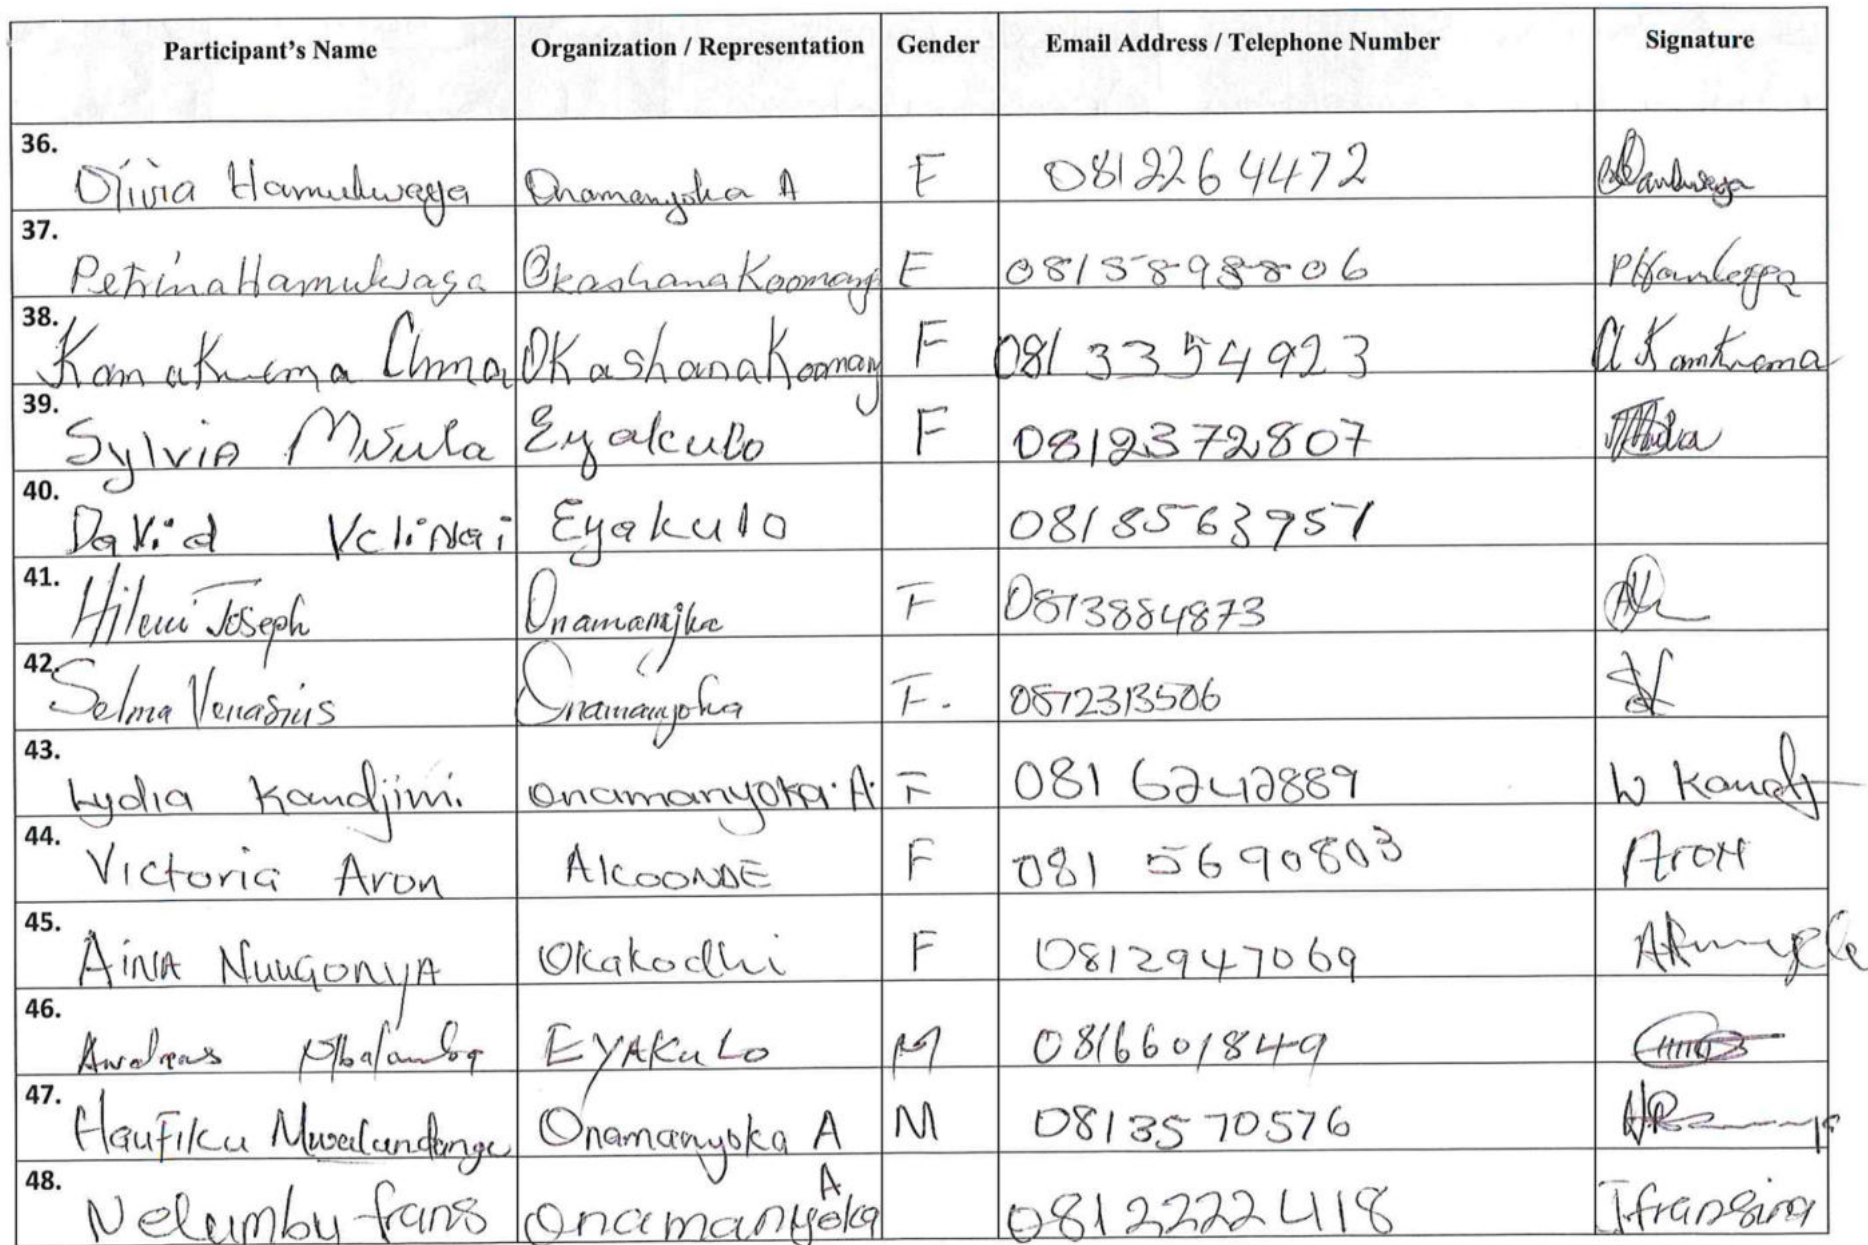 Participant's Name Organization / Representation Gender Email Address / Telephone Number Signature
36. Olivia Hamukwaya Onamanyoka A F 0812264472
37. Petrina Hamukwaya Okashana Koomany F 0815898806
38. Kamakuema Anna Okashana Koomany F 081 3354923 A Kamkuema
39. Sylvia Mvula Eyakulo F 0812372807
40. David Eyakulo 0818563957
41. Hileni Joseph Onamanyika F 0813884873
42. Selma Venasius Onamanyoka F. 0812313506
43. Lydia Kandjimi. Onamanyoka. A. F 081 6242889 W Kandj
44. Victoria Aron AKOONDE F 081 5690803 Aron
45. Aina Nuugonya Okakodhi F 0812947069
46. Andreas EYAKULO M 0816601849
47. Haufiku Mwalundange Onamanyoka A M 0813570576
48. Nelumbu frans Onamanyoka A 0812222418 Ifransina